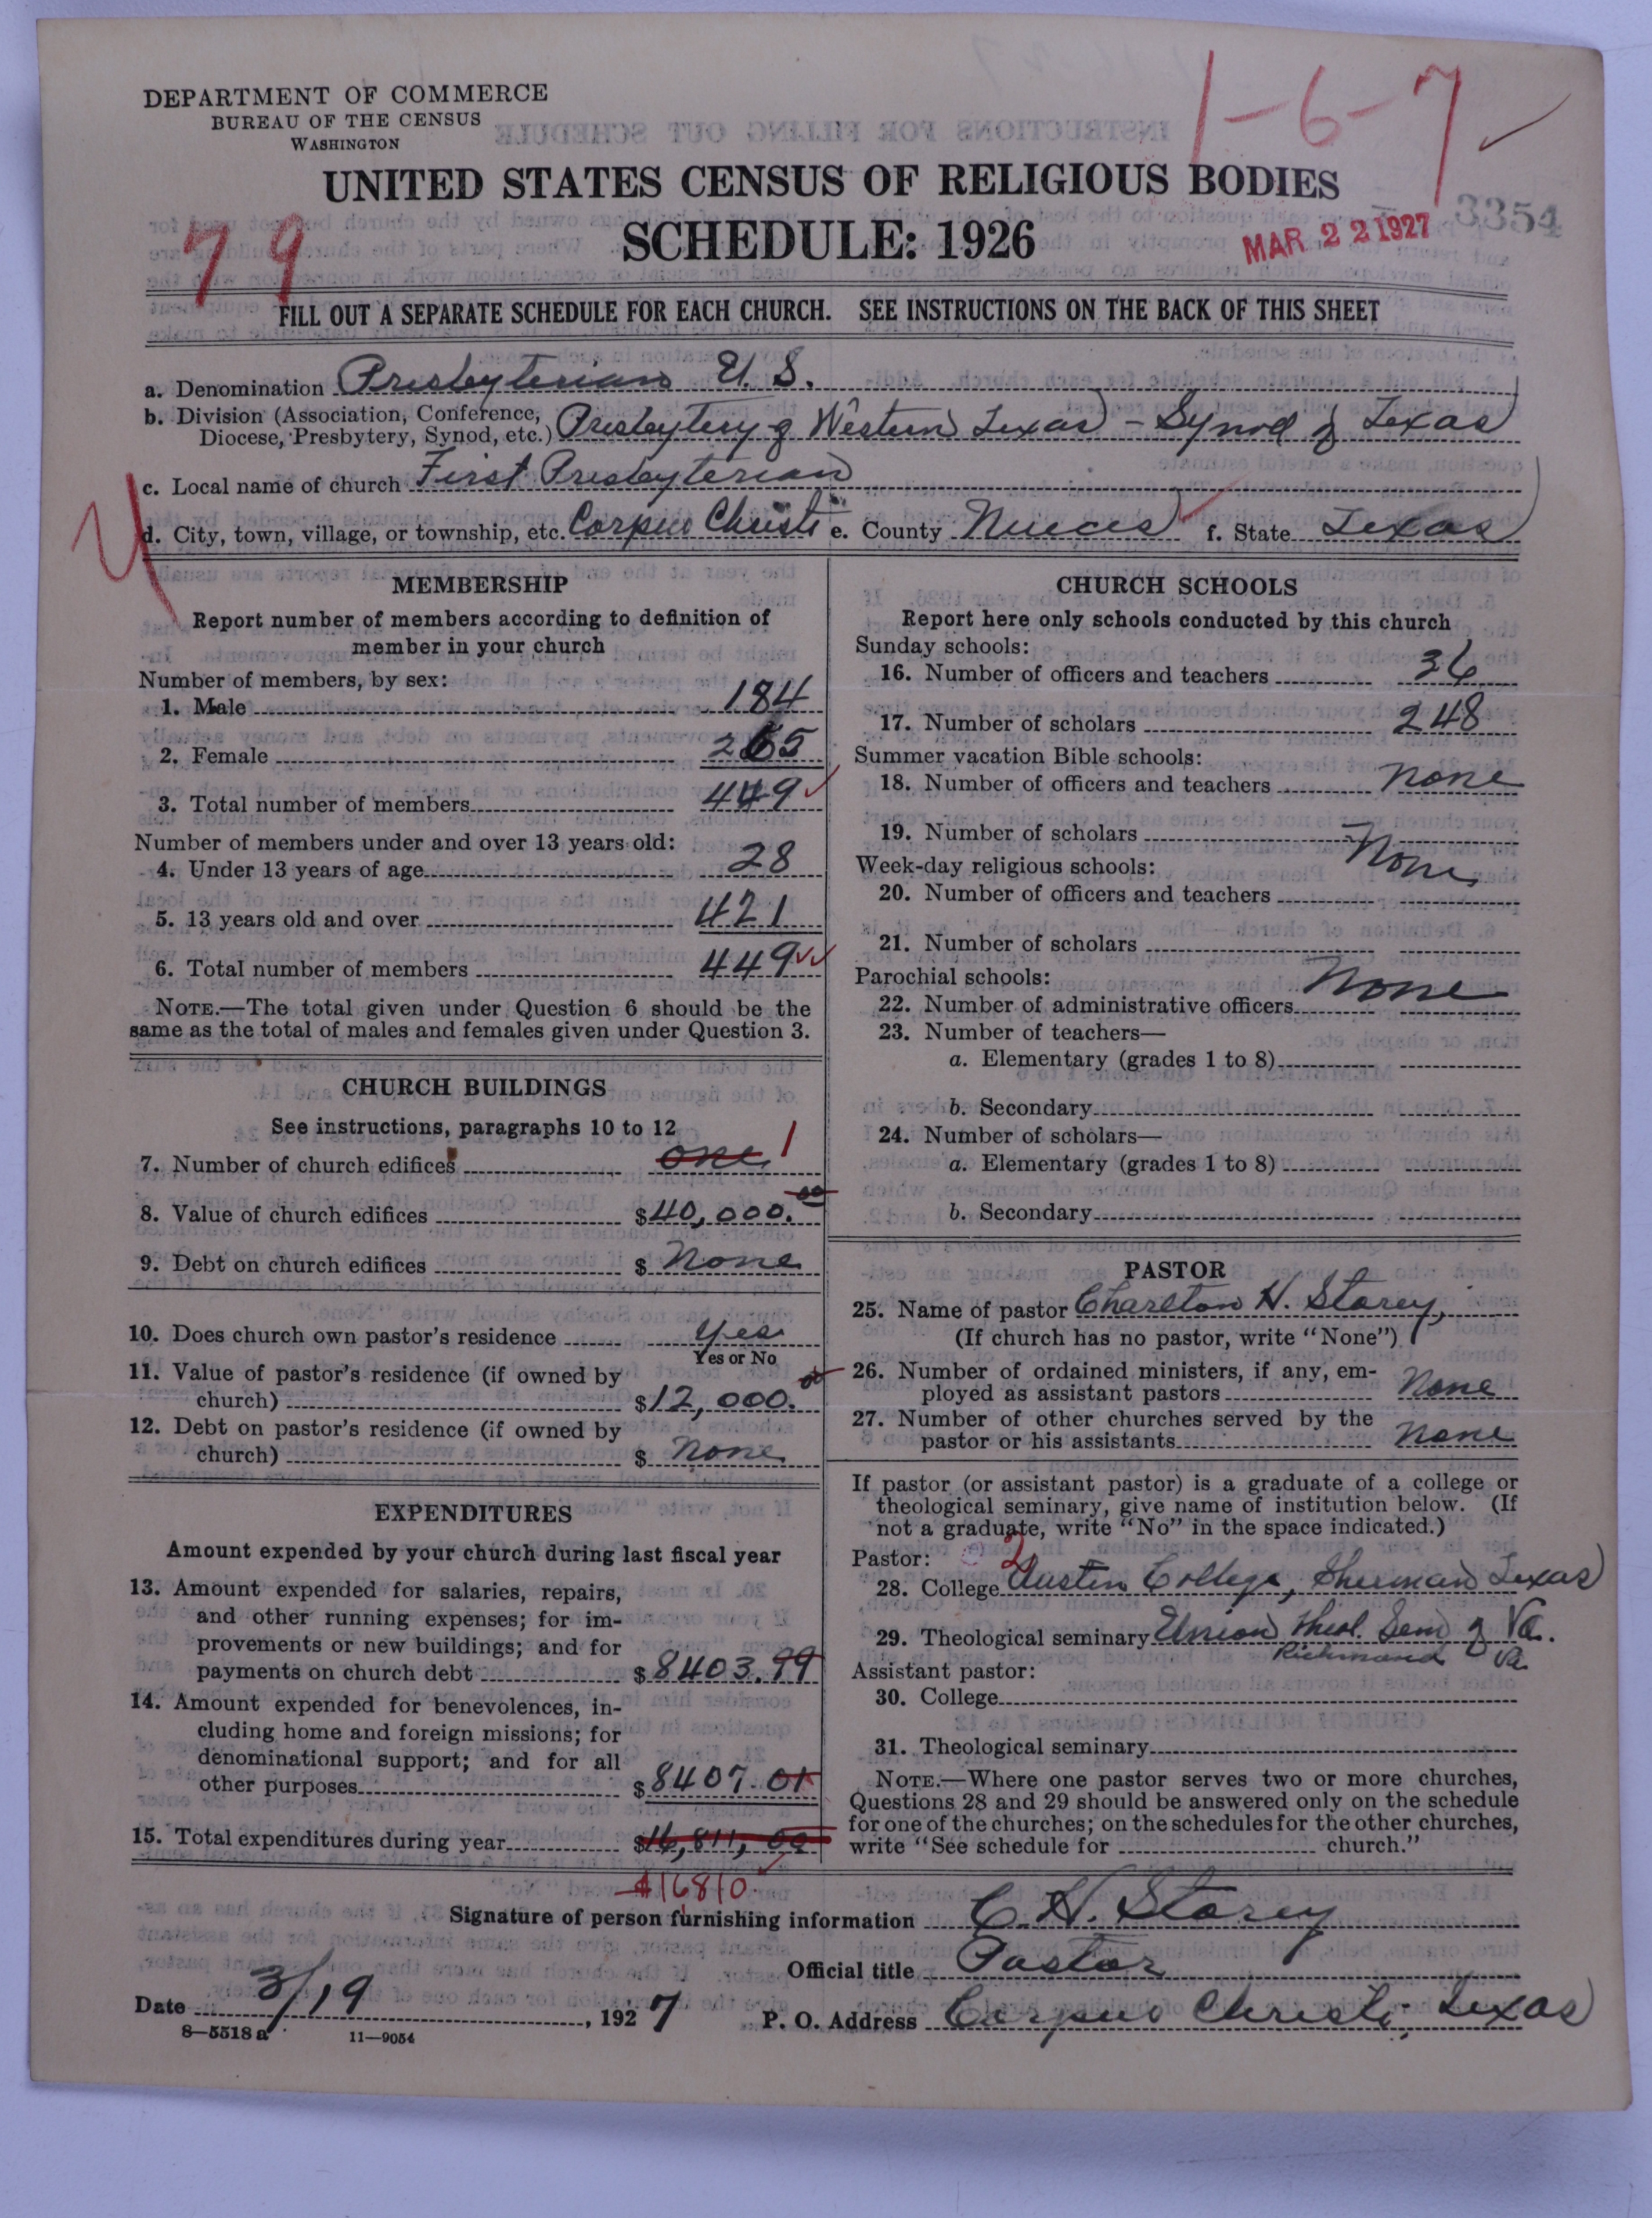 1-6-7
DEPARTMENT OF COMMERCE
BUREAU OF THE CENSUS
WASHINGTON
UNITED STATES CENSUS OF RELIGIOUS BODIES
SCHEDULE: 1926
79
MAR 22 1927
3354
FILL OUT A SEPARATE SCHEDULE FOR EACH CHURCH. SEE INSTRUCTIONS ON THE BACK OF THIS SHEET
a. Denomination Presbyterian U. S.
b. Division (Association, Conference,
Diocese, Presbytery, Synod, etc.) Presbytery of Western Texas - Synod of Texas
c. Local name of church First Presbyterian
d. City, town, village, or township, etc. Corpus Christi e. County Nueces f. State Texas
MEMBERSHIP
Report number of members according to definition of
member in your church
Number of members, by sex:
1. Male 184
2. Female 265
3. Total number of members 449
Number of members under and over 13 years old:
4. Under 13 years of age 28
5. 13 years old and over 421
6. Total number of members 449
NOTE.—The total given under Question 6 should be the
same as the total of males and females given under Question 3.
CHURCH BUILDINGS
See instructions, paragraphs 10 to 12
7. Number of church edifices one 1
8. Value of church edifices $40,000.00
9. Debt on church edifices $ None
10. Does church own pastor's residence Yes
Yes or No
11. Value of pastor's residence (if owned by
church) $12,000.00
12. Debt on pastor's residence (if owned by
church) $ None
EXPENDITURES
Amount expended by your church during last fiscal year
13. Amount expended for salaries, repairs,
and other running expenses; for im-
provements or new buildings; and for
payments on church debt $8403.99
14. Amount expended for benevolences, in-
cluding home and foreign missions; for
denominational support; and for all
other purposes $8407.01
15. Total expenditures during year $16,811,00
$16810
CHURCH SCHOOLS
Report here only schools conducted by this church
Sunday schools:
16. Number of officers and teachers 36
17. Number of scholars 248
Summer vacation Bible schools:
18. Number of officers and teachers None
19. Number of scholars
Week-day religious schools: None
20. Number of officers and teachers
21. Number of scholars
Parochial schools: None
22. Number of administrative officers
23. Number of teachers—
a. Elementary (grades 1 to 8)
b. Secondary
24. Number of scholars—
a. Elementary (grades 1 to 8)
b. Secondary
PASTOR
25. Name of pastor Charlton H. Storey,
(If church has no pastor, write "None")
26. Number of ordained ministers, if any, em-
ployed as assistant pastors None
27. Number of other churches served by the
pastor or his assistants None
If pastor (or assistant pastor) is a graduate of a college or
theological seminary, give name of institution below. (If
not a graduate, write "No" in the space indicated.)
Pastor: 2
28. College Austin College, Sherman Texas
29. Theological seminary Union Theol. Sem of Va.
Richmond Va
Assistant pastor:
30. College
31. Theological seminary
NOTE.—Where one pastor serves two or more churches,
Questions 28 and 29 should be answered only on the schedule
for one of the churches; on the schedules for the other churches,
write "See schedule for church."
Signature of person furnishing information C. H. Storey
Official title Pastor
Date 3/19, 1927 P. O. Address Corpus Christi, Texas
8—5518a 11—9054